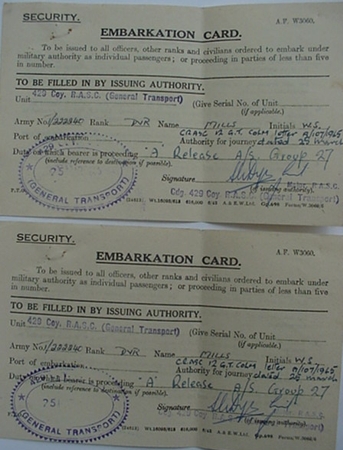 SECURITY.
A.F. W3060.
EMBARKATION CARD.
To be issued to all officers, other ranks and civilians ordered to embark under
military authority as individual passengers; or proceeding in parties of less than five
in number.
TO BE FILLED IN BY ISSUING AUTHORITY.
Unit 429 Coy. R.A.S.C. (General Transport) (Give Serial No. of Unit
(if applicable.)
Army No. Rank DVR Name MILLS Initials W.S.
Port of embarkation CRASC 12 G.T. Colm letter
Authority for journey dated 25 march
which bearer is proceeding "A" Release A/S. Group 27
(include reference to destination if possible).
Signature
(issuing authority).
Cdg. 429 Coy. R.A.S.C. (General Transport)
(GENERAL TRANSPORT)
SECURITY.
A.F. W3060.
EMBARKATION CARD.
To be issued to all officers, other ranks and civilians ordered to embark under
military authority as individual passengers; or proceeding in parties of less than five
in number.
TO BE FILLED IN BY ISSUING AUTHORITY.
Unit 429 Coy. R.A.S.C. (General Transport) (Give Serial No. of Unit
(if applicable.)
Army No. Rank DVR Name MILLS Initials W.S.
Port of embarkation CRASC 12 G.T. Colm letter
Authority for journey dated 25 march
which bearer is proceeding "A" Release A/S. Group 27
(include reference to destination if possible).
Signature
(GENERAL TRANSPORT)